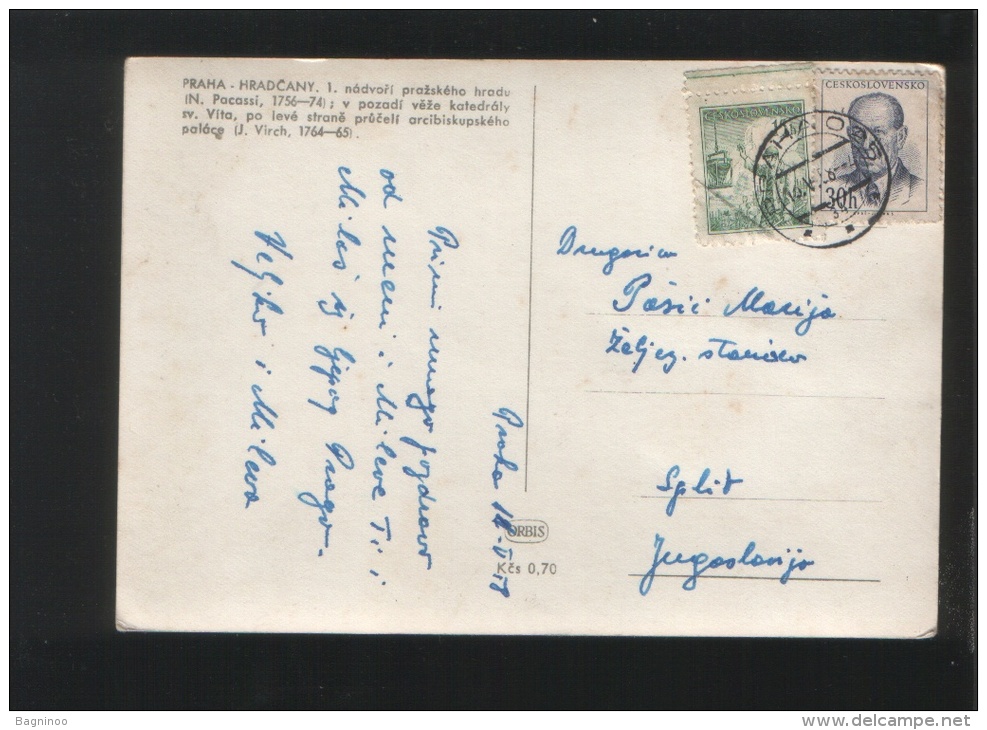 PRAHA - HRADČANY. 1. nádvoří pražského hradu
(N. Pacassi, 1756—74); v pozadí věže katedrály
sv. Víta, po levé straně průčelí arcibiskupského
paláce (J. Virch, 1764—65).
ČESKOSLOVENSKO
ČESKOSLOVENSKO
30h
Praha
Primi mnogo pozdrava
od meni i Mileve Ti i
Miloš iz ljepog Praga.
Veljko i Mileva
Drugarica
Pašić Marija
Željez. stanica
Split
Jugoslavija
ORBIS
Kčs 0,70
Bagninoo
www.delcampe.net